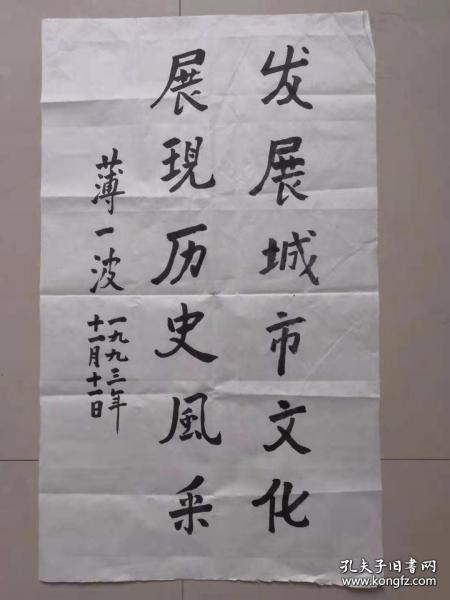 发展城市文化
展現历史風采
薄一波
一九九三年
十一月十一日
孔夫子旧书网
www.kongfz.com